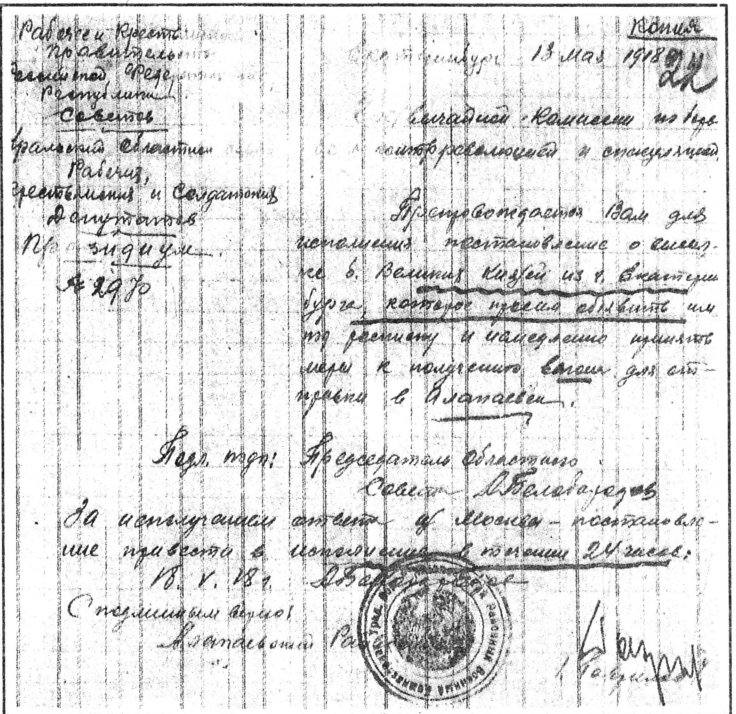 Копия
Рабочее и Крестьян
Правительство
Российской Федер
Республики
Советов
Уральский Областной
Рабочих,
Крестьянских и Солдатских
Депутатов
Президиум
№ 2970
Екатеринбург 13 Мая 1918
22
Чрезвычайной Комиссии по борь
с контрреволюцией и спекуляцией.
Препровождается Вам для
исполнения постановление о высыл-
ке б. Великих Князей из г. Екатерин
бурга, которое просим объявить им
под расписку и немедленно принять
меры к получению вагона для от-
правки в Алапаевск.
Подл. подп: Председатель Областного
Совета А Белобородов
За неполучением ответа из Москвы - постановле-
ние привести в исполнение в течении 24 часов:
18. V. 18 г. А Белобородов
С подлинным верно:
Алапаевский Рай